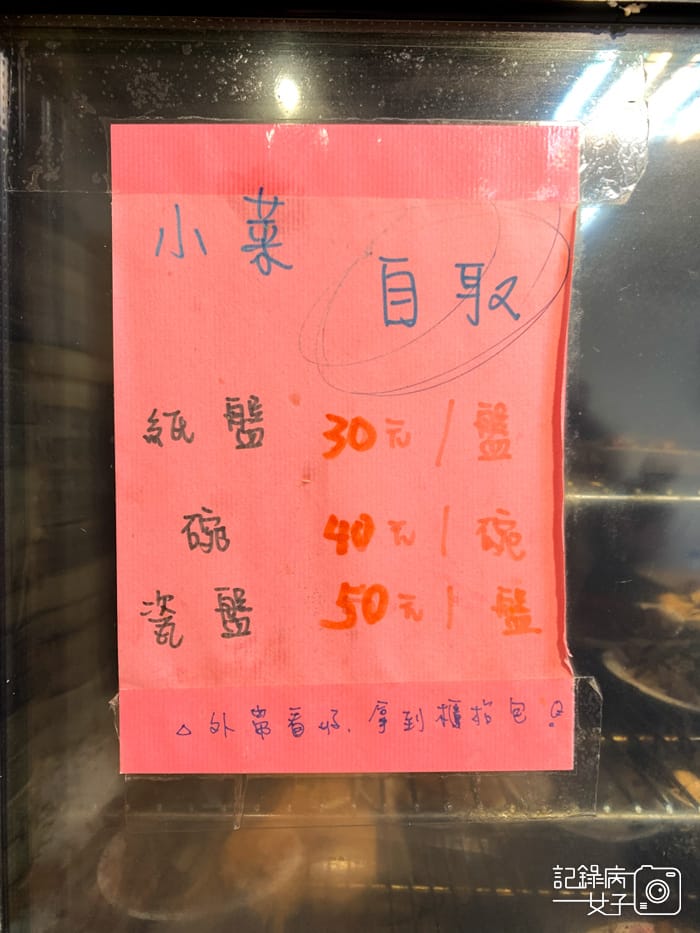 小菜
自取
紙盤 30元/盤
碗 40元/碗
瓷盤 50元/盤
△外帶看好、拿到櫃抬包!
記錄病
女子